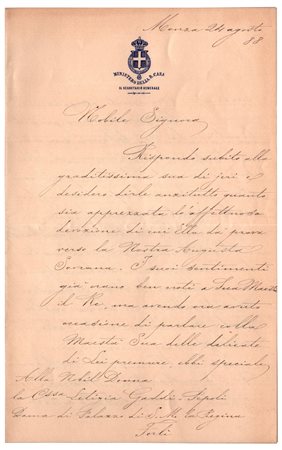 Monza 24 agosto
88
MINISTERO DELLA R. CASA
IL SEGRETARIO GENERALE
Nobile Signora
Rispondo subito alla
graditissima sua di jeri e
desidero dirle anzitutto quanto
sia apprezzata l'affettuosa
devozione di cui Ella dà prova
verso la Nostra Augusta
Sovrana. I suoi sentimenti
già erano ben noti a Sua Maestà
il Re, ma avendo ora avuto
occasione di parlare colla
Maestà Sua delle delicate
di Lei premure, ebbi speciale
Alla Nobil Donna
la Cssa Letizia Gaddi Pepoli
Dama di Palazzo di S. M. la Regina
Forlì